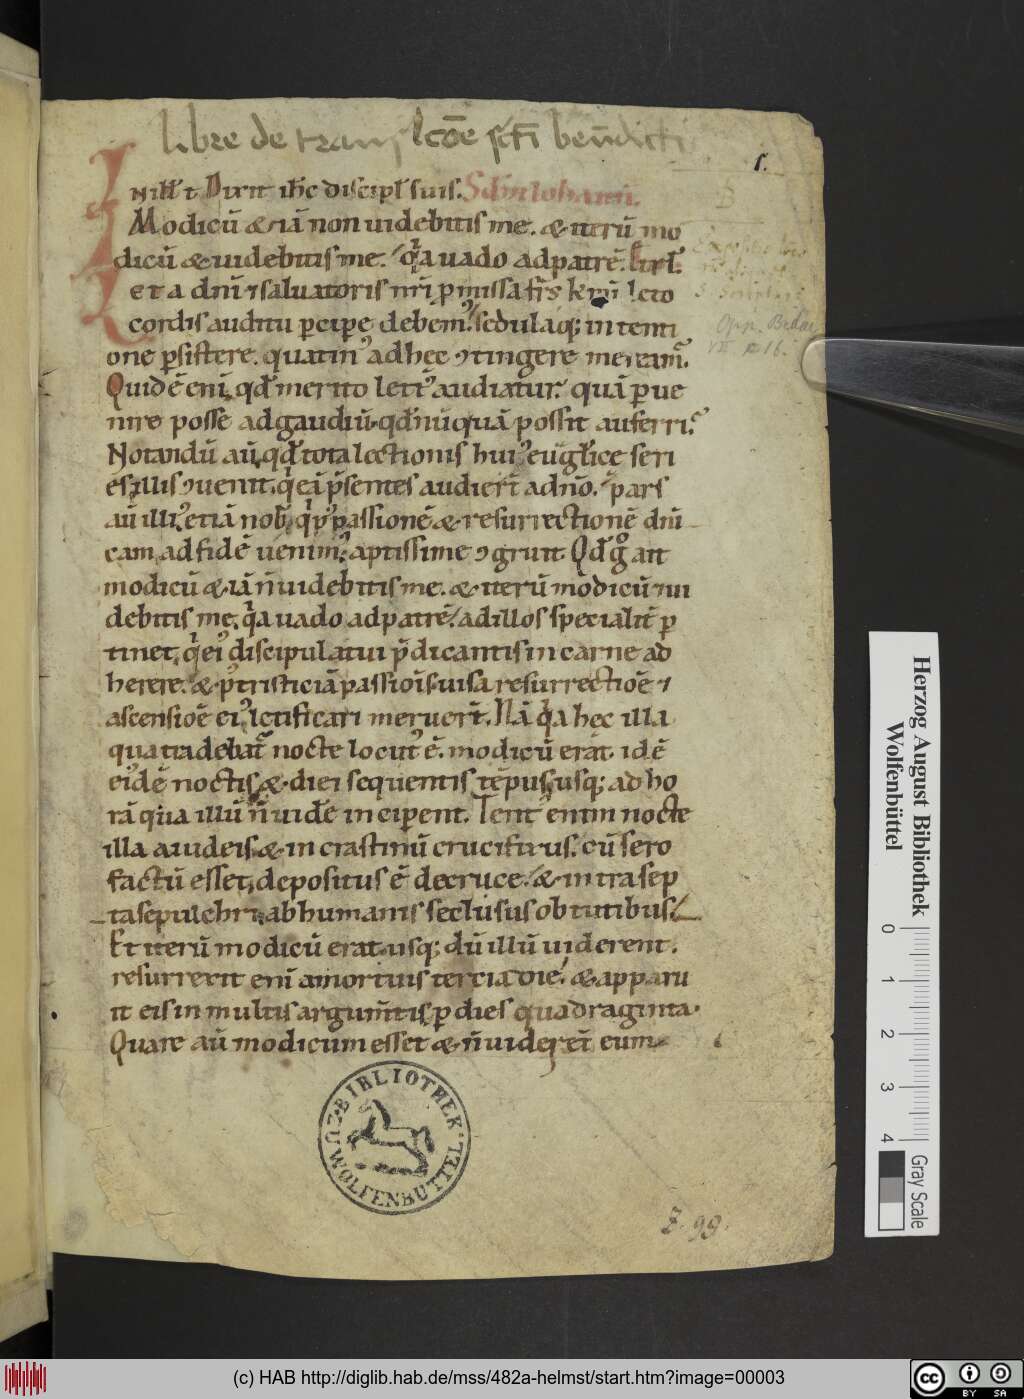 libre de translcōe sc̄ti ben̄dicti
1.
N ill̄ t Dixit ihc discipl' suis. Scd̄m Iohann̄.
Modicū & iā non uidebitis me. & iterū mo
dicū & uidebitis me. q̄a uado ad patrē.
eta dn̄i & saluatoris nr̄i pmissa fr̄s kr̄mi lcto
Opp. Bedae
cordis auditu pcipe debem᷒. sedulaq; intenti
VII p 16.
one psistere. quatin᷒ ad hec ꝯtingere meream᷒.
Quidē eni. qd̄ merito let᷒ audiatur. quā pue
nire posse ad gaudiū. qd̄ nūquā possit auferri᷒
Notandū aū. qd̄ tota lectionis hui᷒ euḡlice seri
es. illis ꝯuenit. q̄ eā p̄sentes audier̄t a dn̄o. pars
aū illi᷒ etiā nob̄. q̄ p᷒ passionē & resurrectionē dn̄i
cam ad fidē uenim᷒. aptissime ꝯgruit. Qd̄ g° ait
modicū & iā n̄ uidebitis me. & iterū modicū & ui
debitis me. q̄a uado ad patrē. ad illos specialit̄ p
tinet. q̄ ei᷒ discipulatui p̄dicantis in carne ad
herere. & p᷒ tristiciā passiōis. uisa resurrectiōe &
ascensiōe ei᷒ letificari meruer̄t. Nā q̄a hec illa
qua tradebat᷒ nocte locut᷒ ē. modicū erat. id ē
ei᷒dē noctis. & diei sequentis tēpus. usq; ad ho
rā qua illū n̄ uidē inciperent. Tent᷒ enim nocte
illa a iudeis. & in crastinū crucifixus. cū sero
factū esset. depositus ē de cruce. & intra sep
ta sepulchri. ab humanis seclusus obtutibus.
Et iterū modicū erat. usq; dū illū uiderent.
resurrexit eni a mortuis tercia die. & apparu
it eis in multis argum̄tis p dies quadraginta.
Quare aū modicum esset & n̄ uideret̄ eum
BIBLIOTHEK ZU WOLFENBÜTTEL
Z. 99.
Herzog August Bibliothek
Wolfenbüttel
0 1 2 3 4
Gray Scale
(c) HAB http://diglib.hab.de/mss/482a-helmst/start.htm?image=00003
cc BY SA